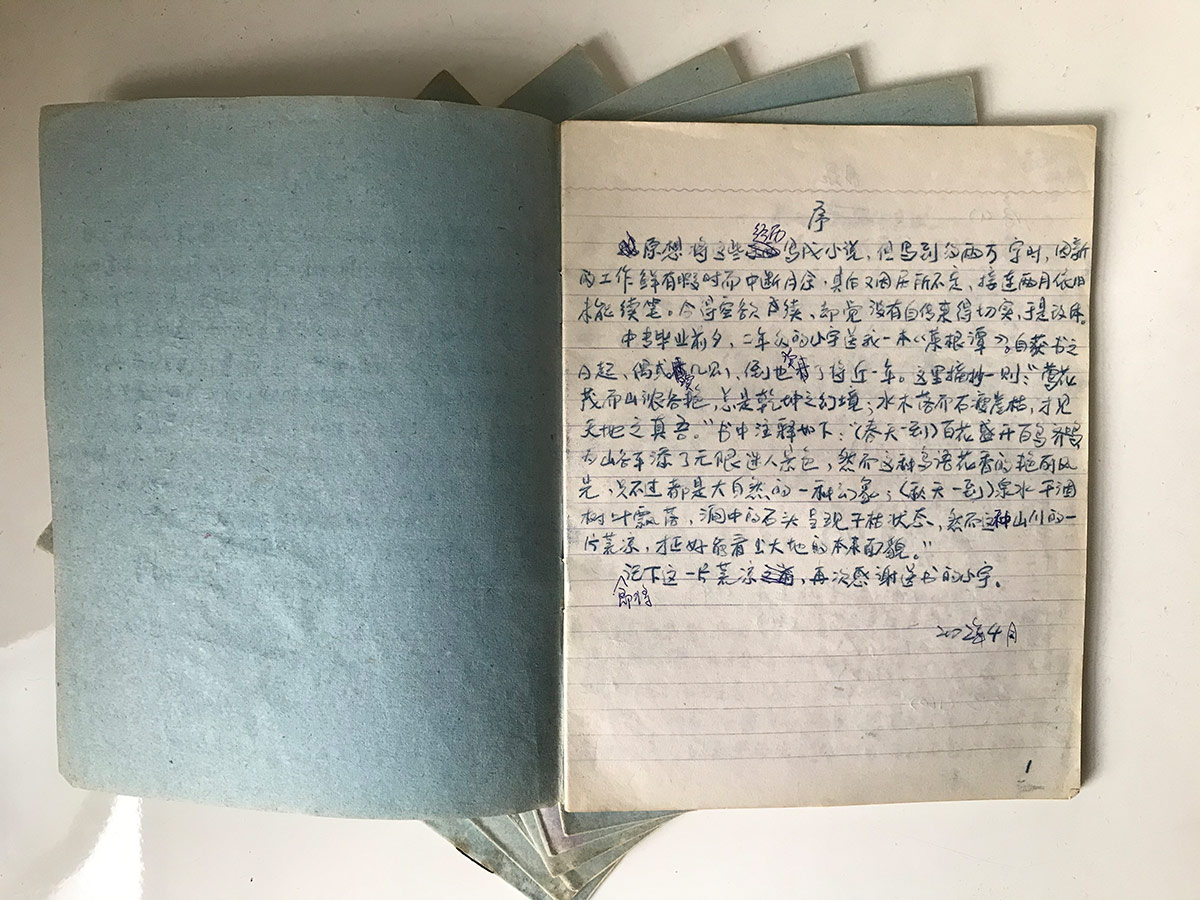 序
原想将这些经历写成小说，但写到约两万字时，因新
的工作鲜有暇时而中断月余，其后又因居所不定，接连两月依旧
未能续笔。今得空欲成续，却觉没有自传来得切实，于是改体。
中专毕业前夕，二年级的小宇送我一本《菜根谭》。自获书之
日起，偶或几见，倒也将近一年。这里摘抄一则：“莺花
茂而山浓谷艳，总是乾坤之幻境；水木落而石瘦崖枯，才见
天地之真吾。”书中注释如下：“（春天一到）百花盛开百鸟齐鸣
为山谷平添了无限迷人景色，然而这种鸟语花香的艳丽风
光，只不过都是大自然的一种幻象；（秋天一到）泉水干涸
树叶飘落，涧中的石头呈现干枯状态，然而这种山川的一
片荒凉，才正好能看出大地的本来面貌。”
即将记下这一片荒凉，再次感谢送书的小宇。
年4月
1